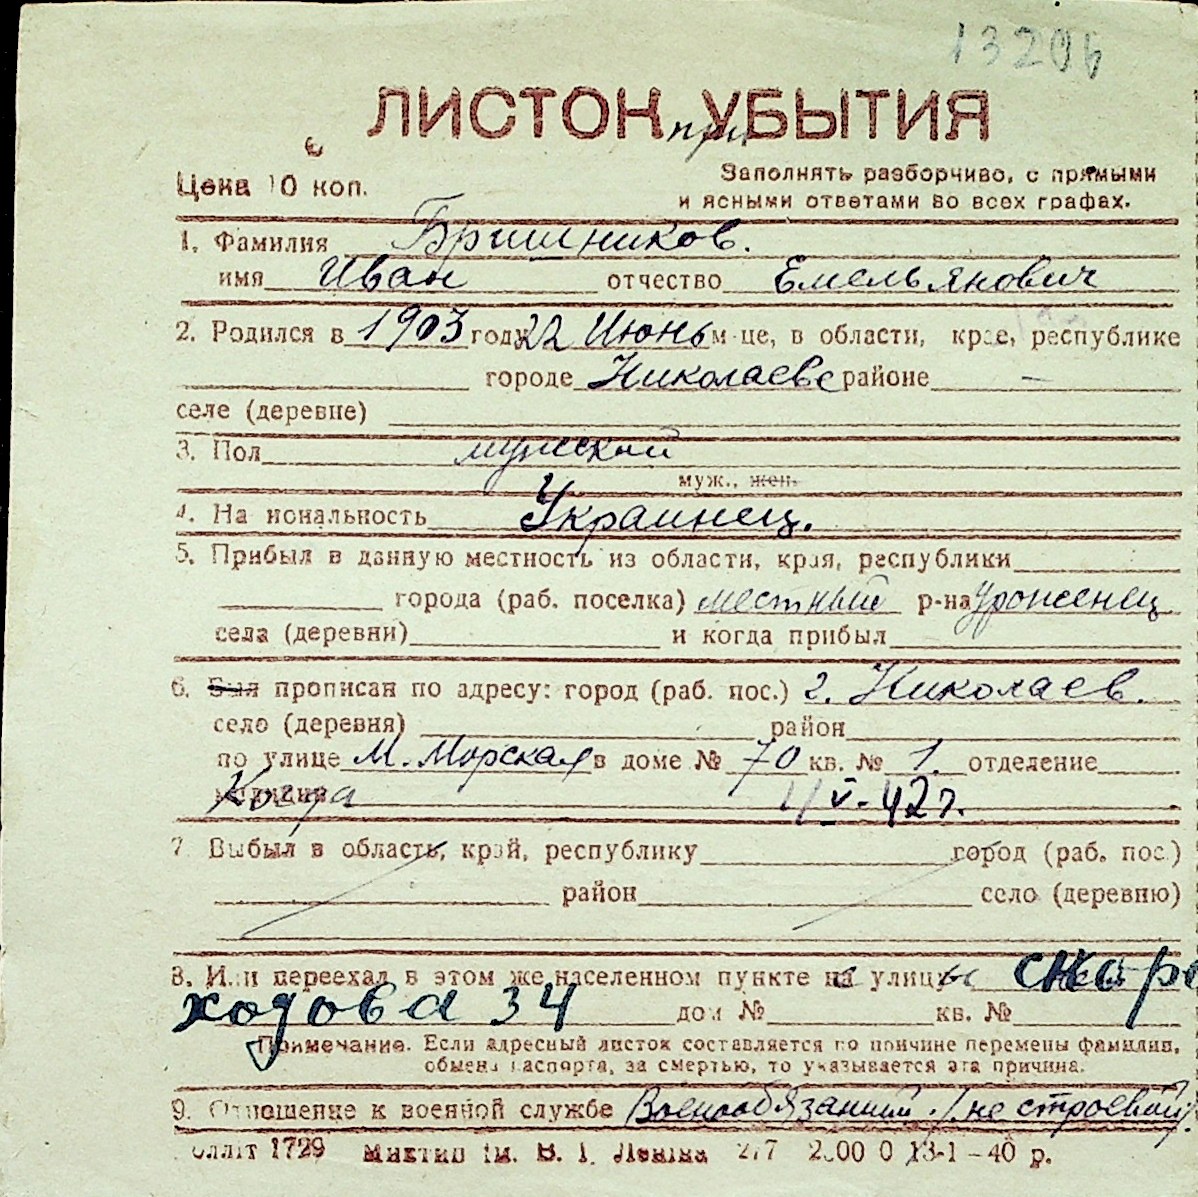 13206
ЛИСТОК УБЫТИЯ
при
Цена 10 коп.
Заполнять разборчиво, с прямыми
и ясными ответами во всех графах.
1. Фамилия Бришников.
имя Иван отчество Емельянович
2. Родился в 1903 году 22 Июнь м-це, в области, крае, республике
городе Николаеве районе —
селе (деревне)
3. Пол мужской
муж., жен.
4. Национальность Украинец.
5. Прибыл в данную местность из области, края, республики
города (раб. поселка) местный р-на уроженец
села (деревни) и когда прибыл
6. Был прописан по адресу: город (раб. пос.) г. Николаев.
село (деревня) район
по улице М. Морская в доме № 70 кв. № 1. отделение
милиции Когда V-42 г.
7. Выбыл в область, край, республику город (раб. пос.)
район село (деревню)
8. Или переехал в этом же населенном пункте с улицы скаро
ходова 34 дом № кв. №
Примечание. Если адресный листок составляется по причине перемены фамилии,
обмена паспорта, за смертью, то указывается эта причина.
9. Отношение к военной службе Военнообязанный. (не строевой).
1729 ім. В. І. Леніна 2000 13-1-40 р.